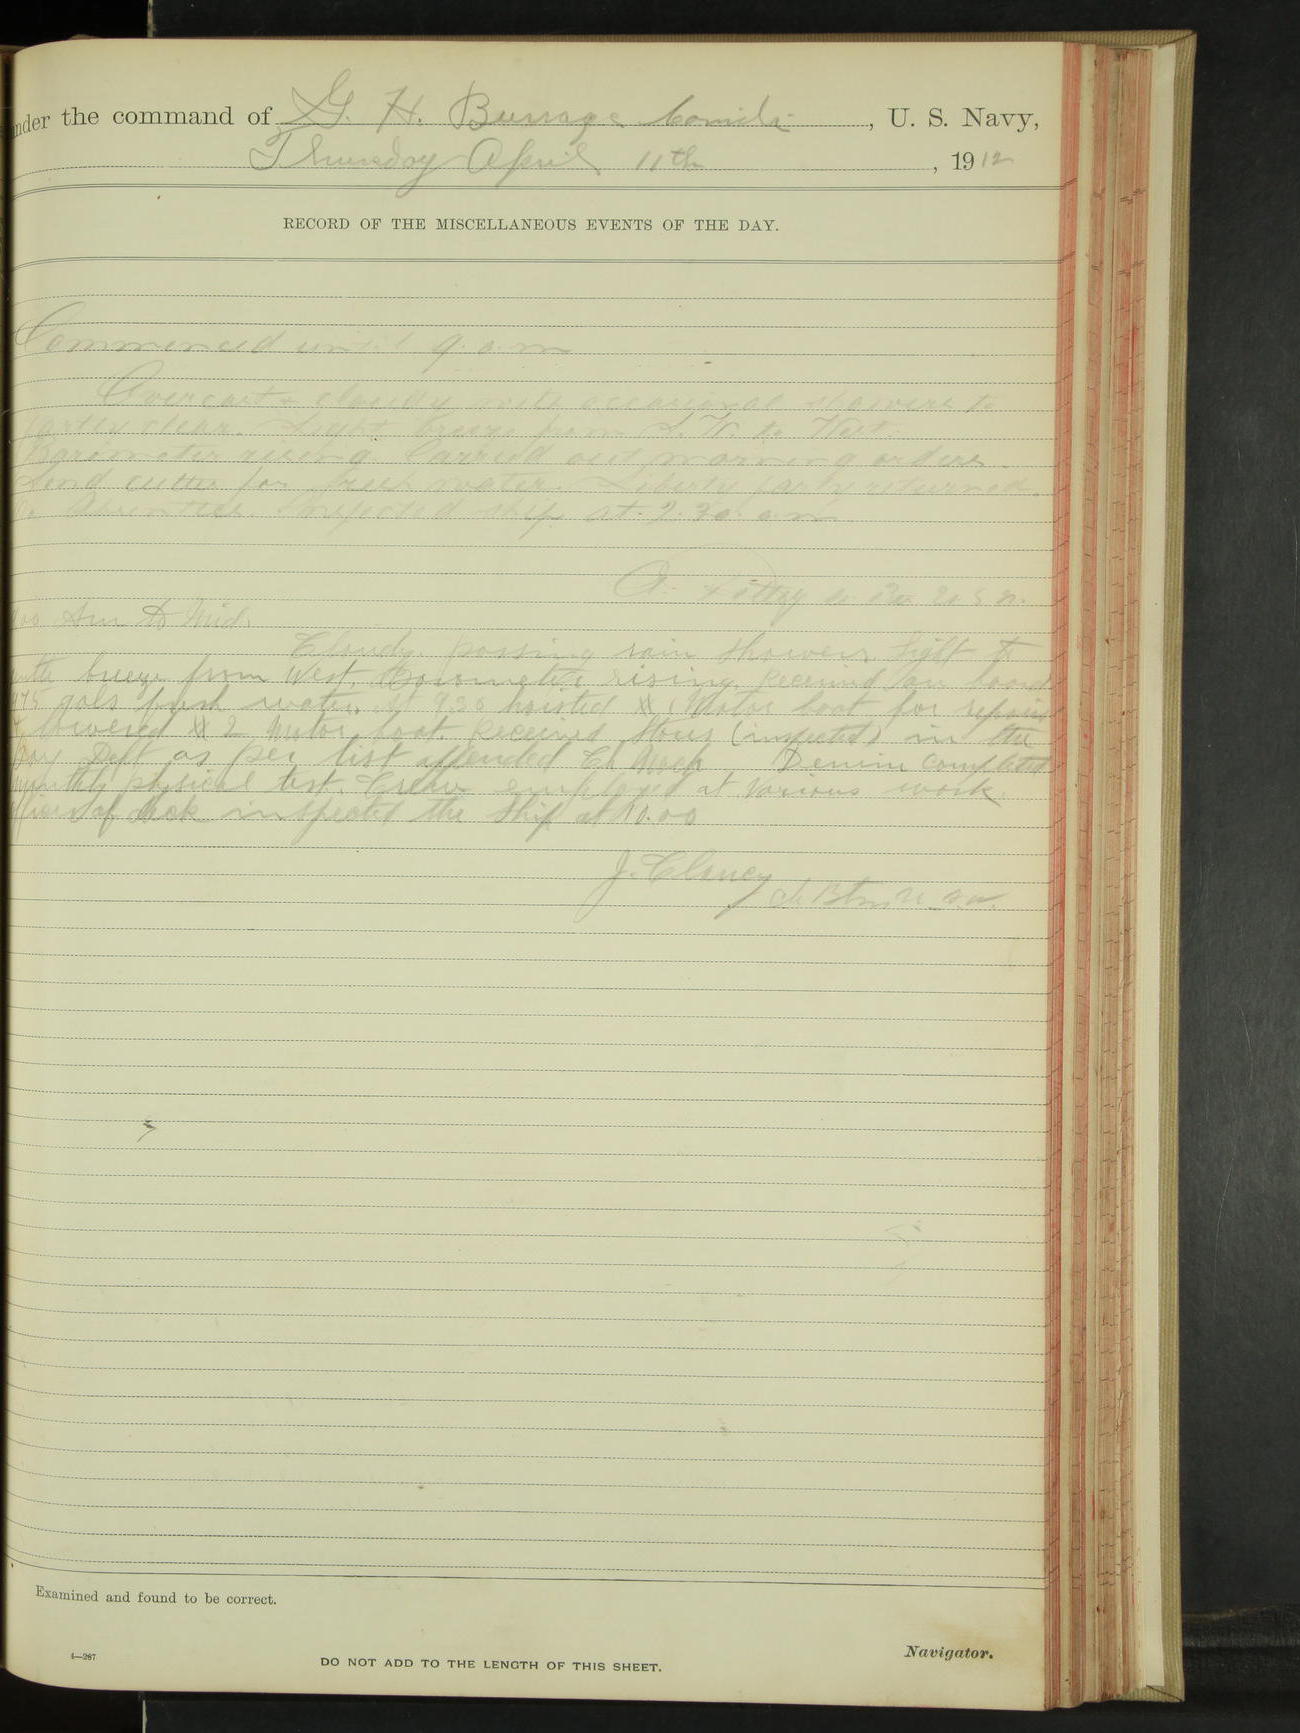 under the command of G. H. Burrage Comdr , U. S. Navy,
Thursday April 11th , 1912
RECORD OF THE MISCELLANEOUS EVENTS OF THE DAY.
Commenced until 9. a. m
Overcast & cloudy with occasional showers to
partly clear. Light breeze from S. W. to West.
Barometer rising. Carried out morning orders.
Send cutter for fresh water. Liberty party returned.
No Absentees. Inspected ship at 2.30. a.m
A.
to Mid.
Cloudy. passing rain showers light to
gentle breeze from West. Barometer rising. Received on board
975 gals fresh water. At 930 hoisted # 1 Motor boat for repairs
& lowered # 2 Motor boat Received Stores (inspected) in the
Pay Dept as per list appended Ch Mach Denim completed
monthly physical test. Crew employed at Various work.
Officer of deck inspected the Ship at 10.00
J. Clancy
ch Btsn U. S. N.
Examined and found to be correct.
Navigator.
4—267
DO NOT ADD TO THE LENGTH OF THIS SHEET.